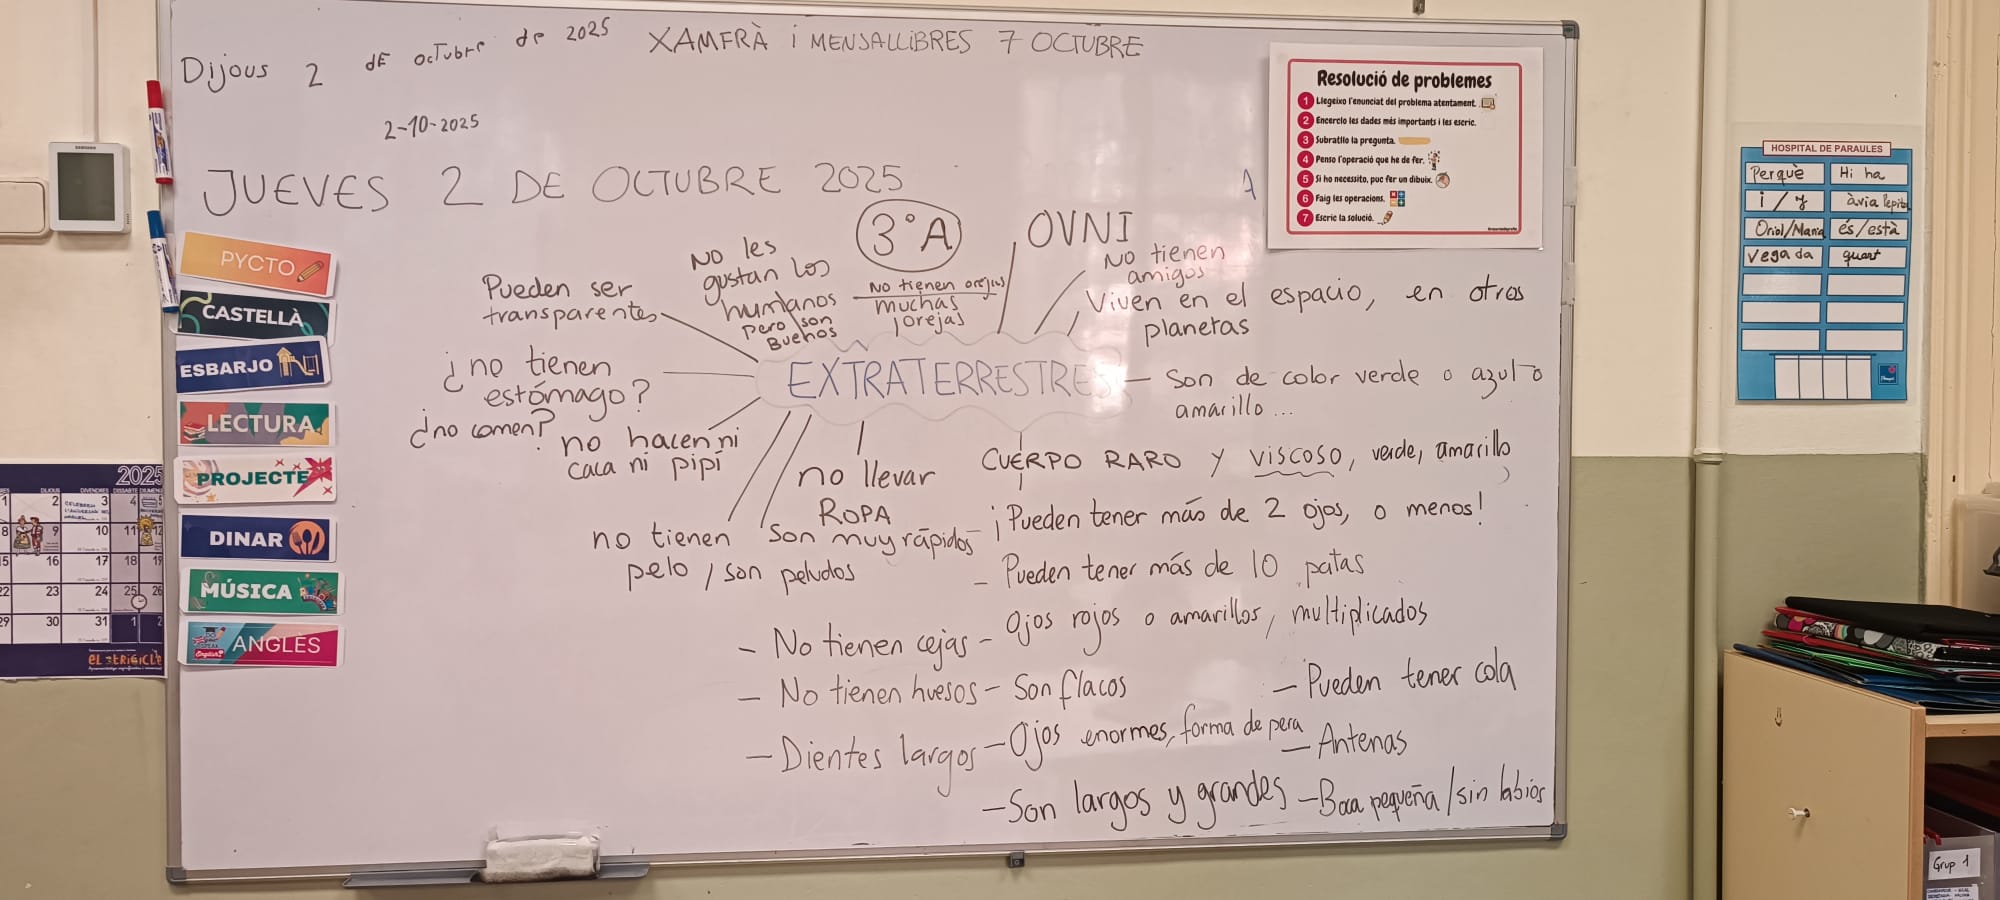 Dijous 2 dE ocTubre de 2025
XAMFRÀ i MENSALLIBRES 7 OCTUBRE
2-10-2025
JUEVES 2 DE OCTUBRE 2025
3ºA
OVNI
NO les
gustan los
humanos
pero son
Buenos
No tienen orejas
muchas
orejas
NO tienen
amigos
Viven en el espacio, en otros
planetas
Pueden ser
transparentes
¿no tienen
estómago?
¿no comen?
EXTRATERRESTRES
Son de color verde o azul o
amarillo...
no hacen ni
caca ni pipí
no llevar
ROPA
CUERPO RARO y VISCOSO, verde, amarillo
no tienen
pelo / son peludos
Son muy rápidos
¡Pueden tener más de 2 ojos, o menos!
- Pueden tener más de 10 patas
- No tienen cejas
- Ojos rojos o amarillos, multiplicados
- No tienen huesos
- Son flacos
- Pueden tener cola
- Dientes largos
- Ojos enormes, forma de pera
- Antenas
- Son largos y grandes
- Boca pequeña / sin labios
PYCTO
CASTELLÀ
ESBARJO
LECTURA
PROJECTE
DINAR
MÚSICA
ANGLÈS
Resolució de problemes
1 Llegeixo l'enunciat del problema atentament.
2 Encerclo les dades més importants i les escric.
3 Subratllo la pregunta.
4 Penso l'operació que he de fer.
5 Si ho necessito, puc fer un dibuix.
6 Faig les operacions.
7 Escric la solució.
HOSPITAL DE PARAULES
Perquè
Hi ha
i / y
àvia Pepita
Oriol/Maria
és/està
Vegada
quart
2025
2 3 4
8 9 10 11 12
15 16 17 18 19
22 23 24 25 26
29 30 31 1 2
Grup 1